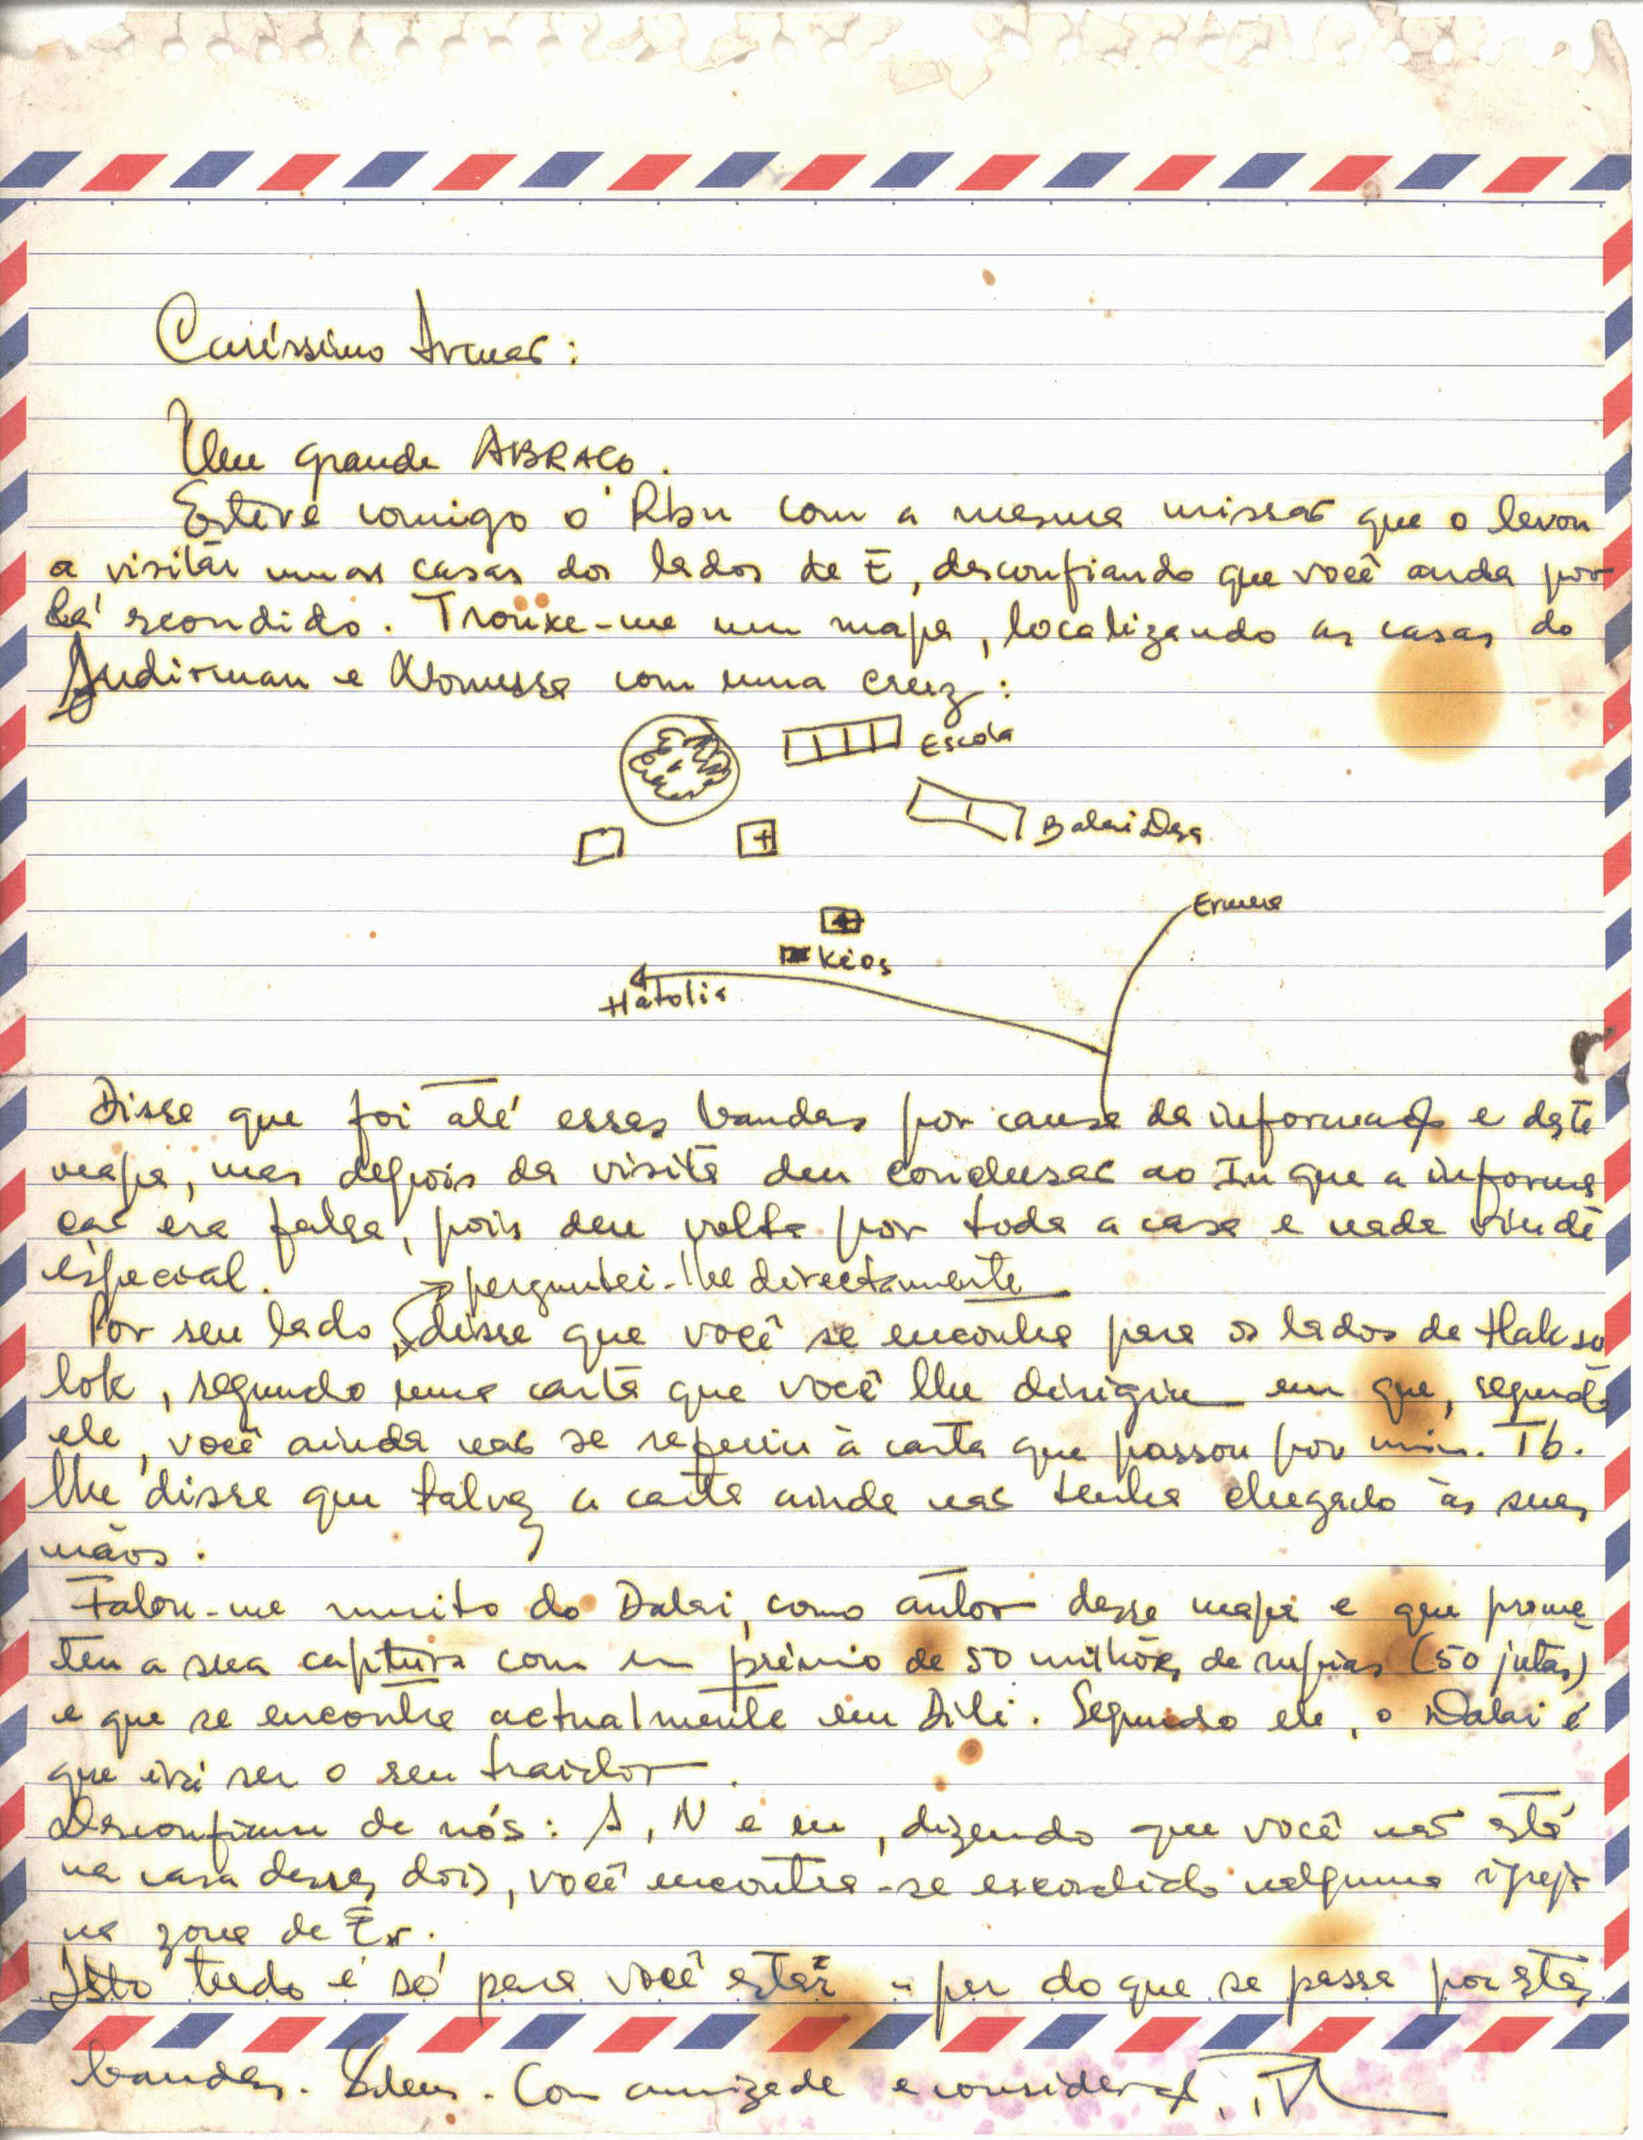 Caríssimo
Um grande ABRAÇO.
Esteve comigo o Rbn com a mesma missão que o levou
a visitar umas casas dos lados de E, desconfiando que você anda por
lá scondido. Trouxe-me um mapa, localizando as casas do
Sudirman e com uma cruz:
Escola
Balai Desa
Ermera
Kios
Hátolia
Disse que foi até essas bandas por causa da informação e deste
mapa, mas depois da visita deu conclusão ao In que a informa
ção era falsa, pois deu volta por toda a casa e nada viu de
especial. perguntei-lhe directamente
Por seu lado, disse que você se encontra para os lados de Hakso
lok, segundo uma carta que você lhe dirigiu em que, segundo
ele, você ainda não se referiu à carta que passou por mim. Tb.
lhe disse que talvez a carta ainda não tenha chegado às suas
mãos.
Falou-me muito do Dalai, como autor desse mapa e que prome
teu a sua captura com um prémio de 50 milhões de rupias (50 jutas)
e que se encontra actualmente em Dili. Segundo ele, o Dalai é
que irá ser o seu traidor.
Desconfiam de nós: A, N e eu, dizendo que você não está
na casa desses dois, você encontra-se escondido nalguma igreja
na zona de Er.
Isto tudo é só para você estar a par do que se passa por estas
bandas. Com amizade e consideração,